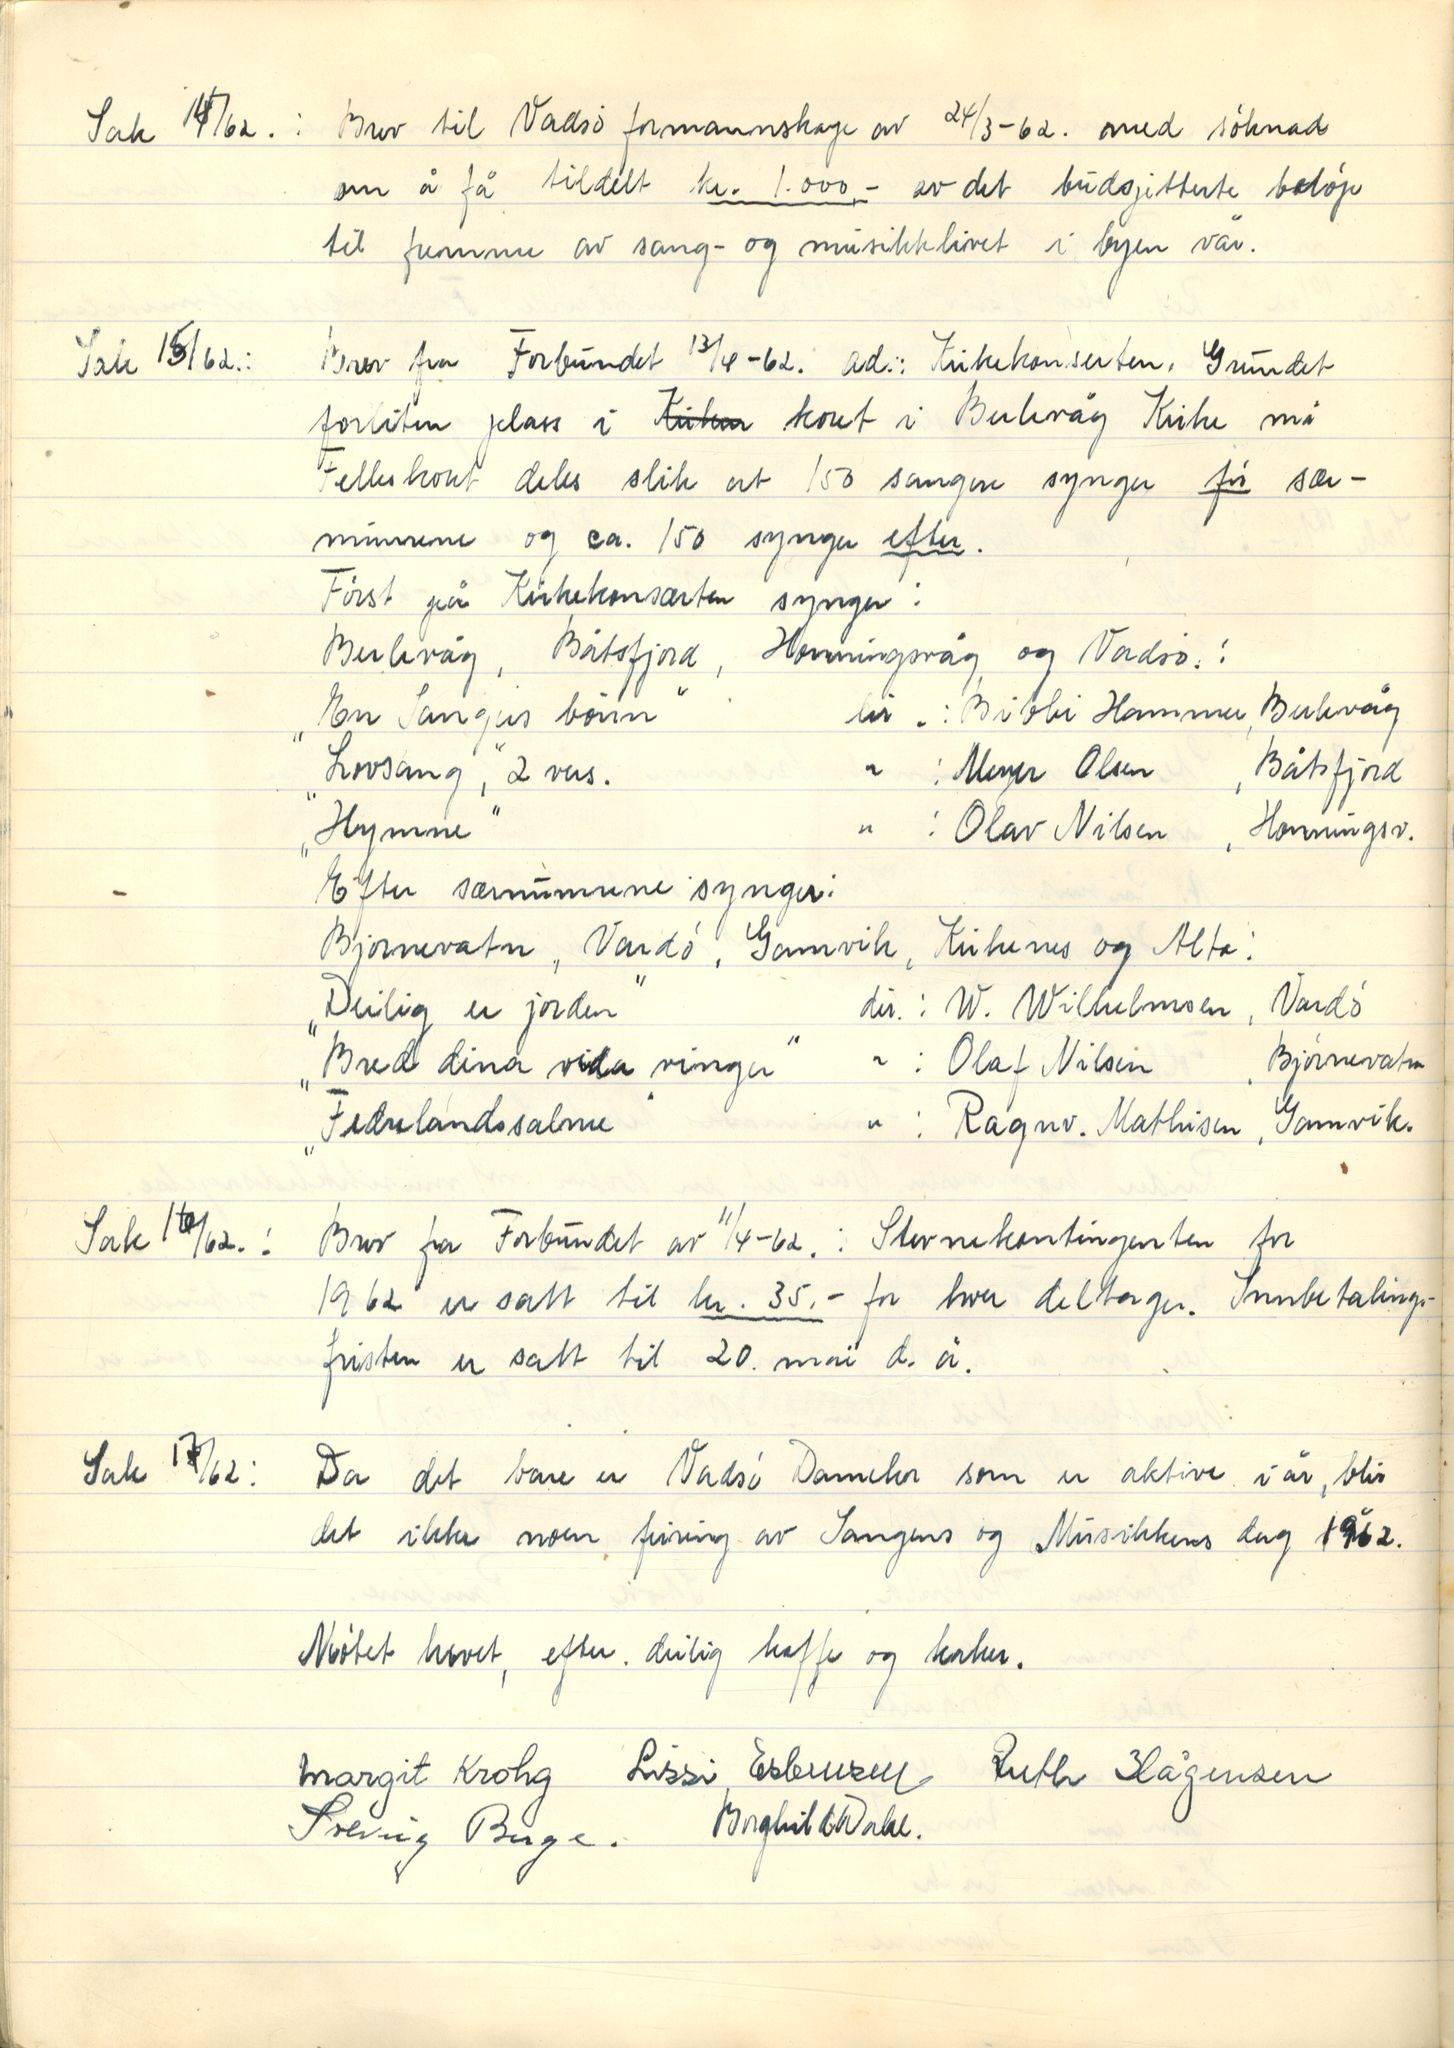 Sak 14/62. : Brev til Vadsö formannskap av 24/3-62. med söknad
om å få tildelt kr. 1.000,- av det budsjetterte belöp
til fremme av sang- og musikklivet i byen vår.
Sak 15/62.: Brev fra Forbundet 13/4-62. ad.: Kirkekonserten. Grundet
forliten plass i Kirken koret i Berlevåg Kirke må
Felleskoret deles slik at 150 sangere synger för sær-
numrene og ca. 150 synger efter.
Först på Kirkekonserten synger:
Berlevåg, Båtsfjord, Honningsvåg og Vadsö.:
„En Sangers bönn" dir. : Bibbi Hammer, Berlevåg
„Lovsang", 2 vers. " : Meyer Olsen, Båtsfjord
„Hymne" " : Olav Nilsen, Honningsv.
Efter særnumrene synger:
Björnevatn, Vardö, Gamvik, Kirkenes og Alta:
„Deilig er jorden" dir. : W. Wilhelmsen, Vardö
„Bred dina vida vinger" " : Olaf Nilsen, Björnevatn
„Fedrelandssalme" " : Ragnv. Mathisen, Gamvik.
Sak 16/62. : Brev fra Forbundet av 11/4-62. : Stevnekontingenten for
1962 er satt til kr. 35,- for hver deltager. Innbetalings-
fristen er satt til 20. mai d. å.
Sak 17/62: Da det bare er Vadsö Damekor som er aktive i år, blir
det ikke noen feiring av Sangens og Musikkens dag 1962.
Mötet hevet, efter deilig kaffe og kaker.
Margit Krohg Lissi Esbensen Ruth Hågensen
Solveig Berge. Borghild Dahl.